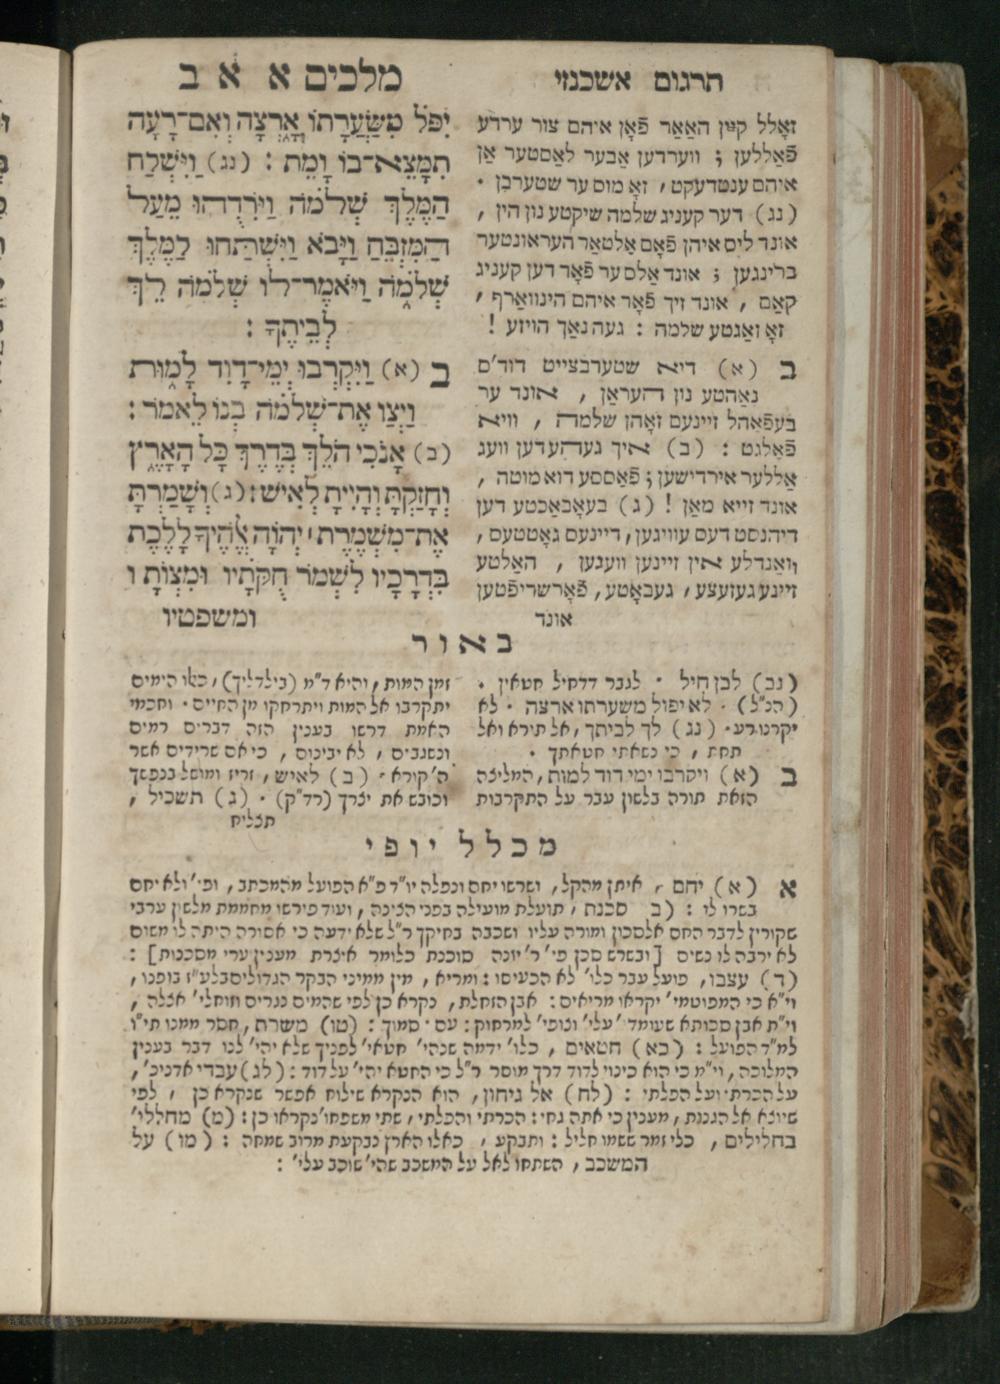 תרגום אשכנזי
מלכים א א ב
זאָלל קיין האַאַר פֿאָן איהם צור ערדע
פֿאַללען ; ווערדען אַבער לאַסטער אַן
איהם ענטדעקט , זאָ מוס ער שטערבן .
(נג) דער קעניג שלמה שיקטע נון הין ,
אונד ליס איהן פֿאָם אַלטאַר העראונטער
ברינגען ; אונד אַלס ער פֿאָר דען קעניג
קאַם , אונד זיך פֿאָר איהם הינווארף ,
זאָ זאַגטע שלמה : געה נאַך הויזע !
ב (א) דיא שטערבצייט דוד'ס
נאַהטע נון העראַן , אונד ער
בעפֿאַהל זיינעם זאָהן שלמה , וויא
פֿאָלגט : (ב) איך געהע דען וועג
אַללער אירדישען ; פֿאַססע דוא מוטה ,
אונד זייא מאַן ! (ג) בעאָבאַכטע דען
דיהנסט דעס עוויגען , דיינעס גאָטטעס ,
וואַנדלע אין זיינען וועגען , האַלטע
זיינע געזעצע , געבאָטע , פֿאָרשריפֿטען
אונד
יִפֹּל מִשַּׂעֲרָתוֹ אָרְצָה וְאִם־רָעָה
תִמָּצֵא־בוֹ וָמֵת : (נג) וַיִּשְׁלַח
הַמֶּלֶךְ שְׁלֹמֹה וַיֹּרִדֻהוּ מֵעַל
הַמִּזְבֵּחַ וַיָּבֹא וַיִּשְׁתַּחוּ לַמֶּלֶךְ
שְׁלֹמֹה וַיֹּאמֶר־לוֹ שְׁלֹמֹה לֵךְ
לְבֵיתֶךָ :
ב (א) וַיִּקְרְבוּ יְמֵי־דָוִד לָמוּת
וַיְצַו אֶת־שְׁלֹמֹה בְנוֹ לֵאמֹר :
(ב) אָנֹכִי הֹלֵךְ בְּדֶרֶךְ כָּל הָאָרֶץ
וְחָזַקְתָּ וְהָיִיתָ לְאִישׁ : (ג) וְשָׁמַרְתָּ
אֶת־מִשְׁמֶרֶת ׀ יְהוָֹה אֱלֹהֶיךָ לָלֶכֶת
בִּדְרָכָיו לִשְׁמֹר חֻקֹּתָיו וּמִצְוֹתָיו
ומשפטיו
באור
(נב) לבן חיל . לגבר דדחיל חטאין .
(הנ"ל) . לא יפול משערתו ארצה . לא
יקרנו רע . (נג) לך לביתך , אל תירא ואל
תחת , כי נשאתי חטאתך .
ב (א) ויקרבו ימי דוד למות , המליצה
הזאת תורה בלשון עבר על התקרבות
זמן המות , והיא ד"מ (בילדליך) , כאו הימים
יתקרבו אל המות ויתרחקו מן החיים . וחכמי
האמת דרשו בענין הזה דברים רמים
ונשגבים , לא יבינום , כי אם שרידים אשר
ה' קורא . (ב) לאיש , זריז ומושל בנפשך
וכובש את יצרך (רד"ק) . (ג) תשכיל ,
תצליח
מכלל יופי
א (א) יחם , איתן מהקל , ושרשו יחם ונפלה יו"ד פ"א הפועל מהמכתב , ופי' ולא יחם
בשרו לו : (ב סכנת , תועלת מועילה בפני הצינה , ועוד פירשו מחממת מלשון ערבי
שקורין לדבר החם אלסכון ומורה עליו ושכבה בחיקך ר"ל שלא ידעה כי אסורה היתה לו משום
לא ירבה לו נשים [ובשרש סכן פי' ר' יונה סוכנת כלומר אוצרת מענין ערי מסכנות] :
(ד) עצבו , פועל עבר כלו' לא הכעיסו : ומריא , מין ממיני הבקר הגדולים בלע"ז בופנו ,
וי"א כי המפוטמי' יקראו מריאים : אבן הזחלת , נקרא כן לפי שהמים נגרים וזוחלי' אצלה ,
וי"ת אבן סכותא שעומד' עלי' וצופי' למרחוק : עם . סמוך : (טו) משרת , חסר ממנו תי"ו
למ"ד הפועל : (כא) חטאים , כלו' ידמה שנהי' חטאי' לפניך שלא יהי' לנו דבר בענין
המלוכה , וי"מ כי הוא כינוי לדוד דרך מוסר ר"ל כי החטא יהי' על דוד : (לג) עבדי אדניכ' ,
על הכרת' ועל הפלתי : (לח) אל גיחון , הוא הנקרא שילוח אפשר שנקרא כן , לפי
שיוצא אל הגנות , מענין כי אתה גחי : הכרתי והפלתי , שתי משפחו' נקראו כן : (מ) מחללו'
בחלילים , כלי זמר ששמו חליל : ותבקע , כאלו הארץ נבקעת מרוב שמחה : (מז) על
המשכב , השתחו לאל על המשכב שהי' שוכב עלי' :